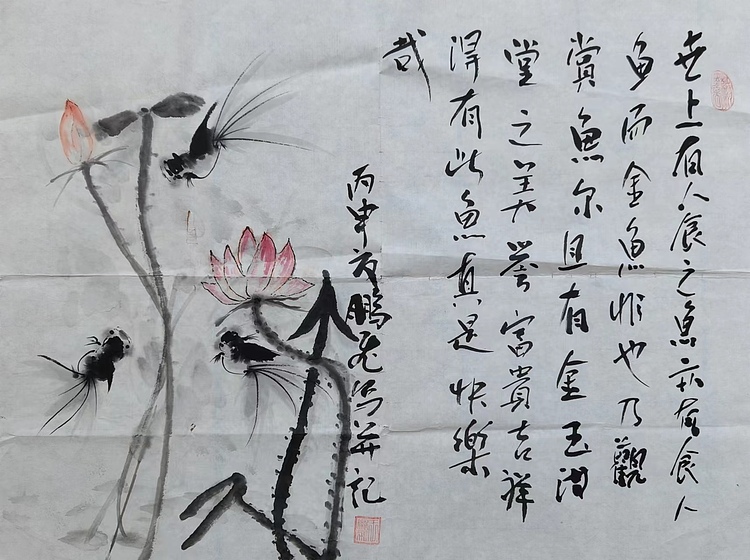 世上有人食之魚亦有食人
魚而金魚非也乃觀
賞魚尔且有金玉满
堂之美譽富貴吉祥
得有此魚真是快樂
哉
丙申 鹏飞写并記